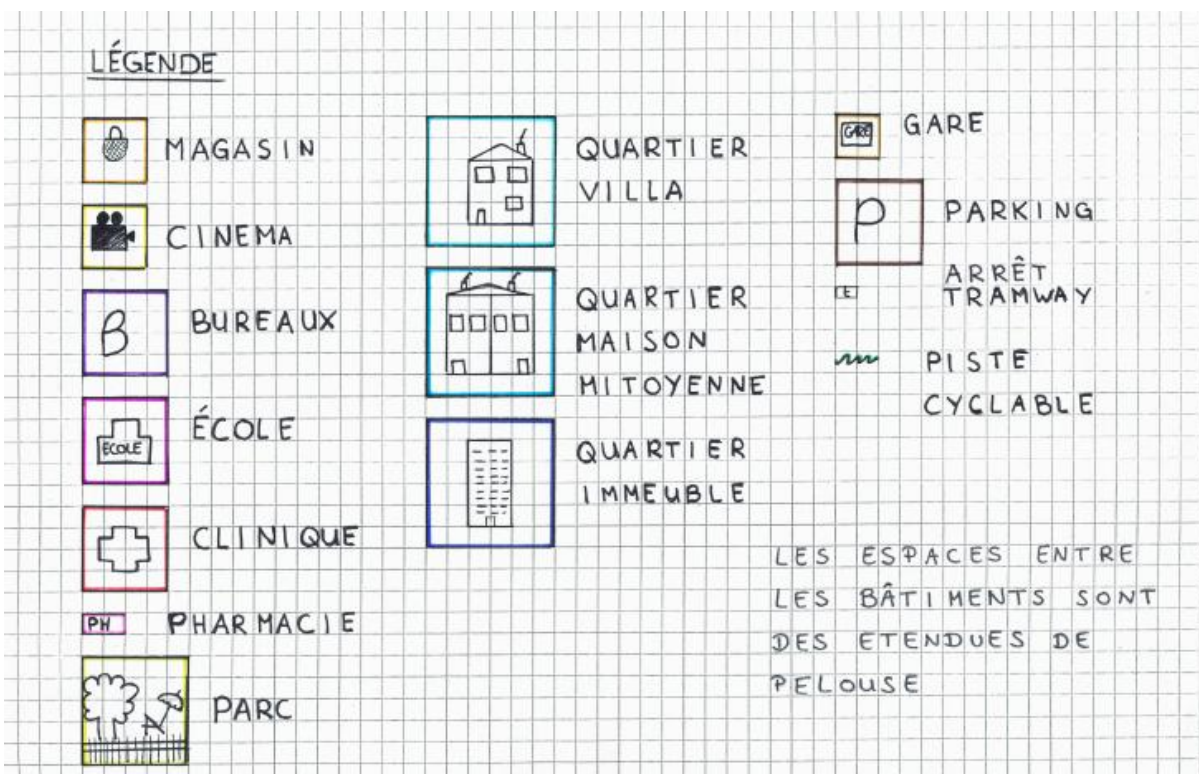 LÉGENDE
MAGASIN
CINEMA
B
BUREAUX
ECOLE
ÉCOLE
CLINIQUE
PH
PHARMACIE
PARC
QUARTIER
VILLA
QUARTIER
MAISON
MITOYENNE
QUARTIER
IMMEUBLE
GARE
GARE
P
PARKING
ARRÊT
TRAMWAY
PISTE
CYCLABLE
LES ESPACES ENTRE
LES BÂTIMENTS SONT
DES ETENDUES DE
PELOUSE